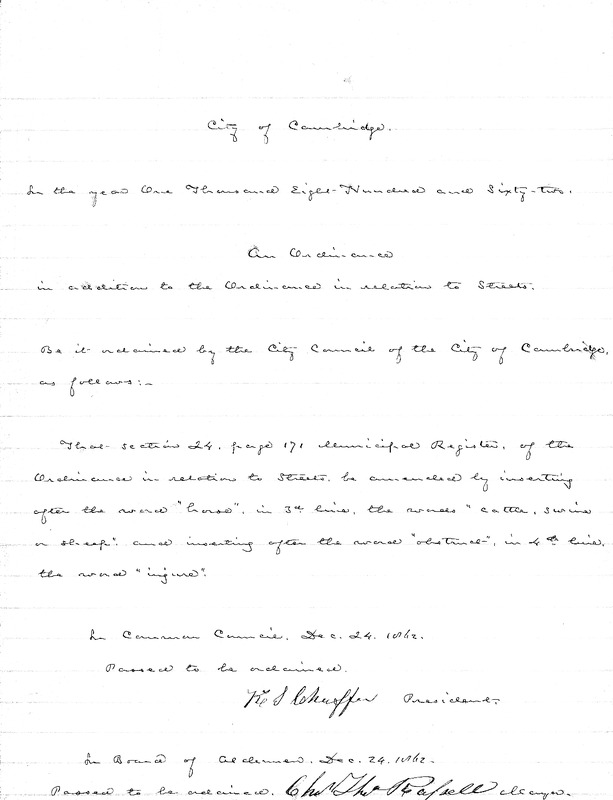 City of Cambridge.
In the year One Thousand Eight-Hundred and Sixty-two.
An Ordinance
in addition to the Ordinance in relation to Streets.
Be it ordained by the City Council of the City of Cambridge,
as follows:-
That section 24, page 171 Municipal Register, of the
Ordinance in relation to Streets, be amended by inserting
after the word "horse", in 3d line, the words "cattle, swine
or sheep". and inserting after the word "obstruct", in 4th line,
the word "injure".
In Common Council, Dec. 24. 1862.
Passed to be ordained.
President.
In Board of Aldermen, Dec. 24. 1862.
Passed to be ordained. Chas Theo Russell Mayor.